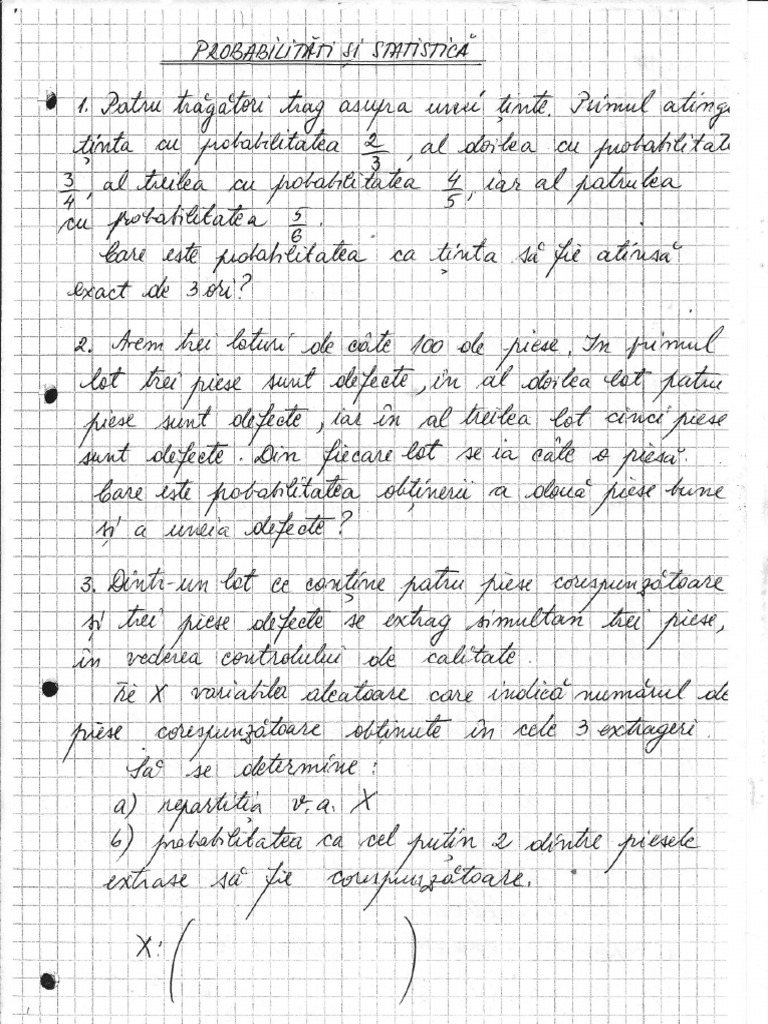 PROBABILITĂȚI ȘI STATISTICĂ
1. Patru trăgători trag asupra unei ținte. Primul ating
ținta cu probabilitatea 2/3, al doilea cu probabilitat
3/4, al treilea cu probabilitatea 4/5, iar al patrulea
cu probabilitatea 5/6.
Care este probabilitatea ca ținta să fie atinsă
exact de 3 ori?
2. Avem trei loturi de câte 100 de piese. In primul
lot trei piese sunt defecte, în al doilea lot patru
piese sunt defecte, iar în al treilea lot cinci piese
sunt defecte. Din fiecare lot se ia câte o piesă.
Care este probabilitatea obținerii a două piese bune
și a uneia defecte?
3. Dintr-un lot ce conține patru piese corespunzătoare
și trei piese defecte se extrag simultan trei piese,
în vederea controlului de calitate.
Fie X variabila aleatoare care indică numărul de
piese corespunzătoare obținute în cele 3 extrageri.
Să se determine:
a) repartiția v.a. X
b) probabilitatea ca cel puțin 2 dintre piesele
extrase să fie corespunzătoare.
X: ( )